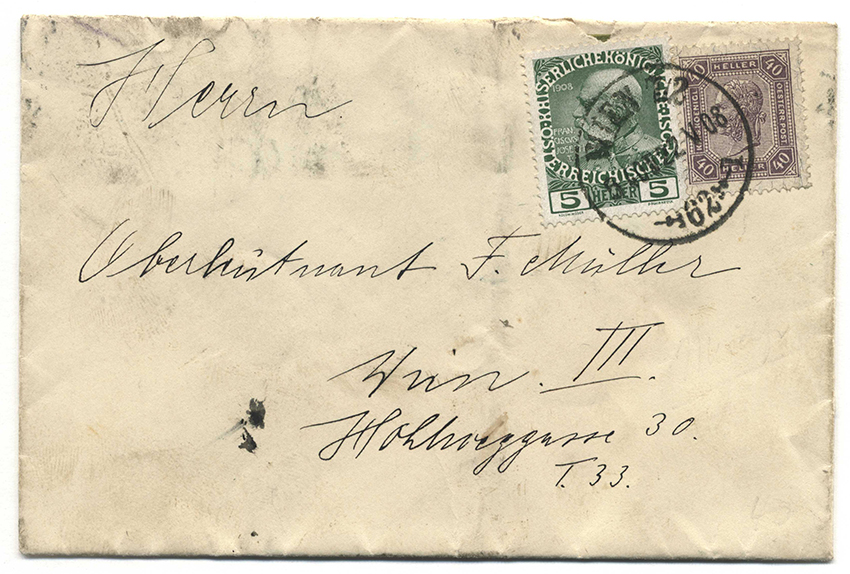 Herrn
Oberleutnant F. Müller
Wien. III.
Hohlweggasse 30.
T. 33.
KAISERLICHE KÖNIGLICHE
ÖSTERREICHISCHE
1908
FRAN
CISCUS
JOSEF
5 HELLER 5
40 HELLER 40
40 HELLER 40
WIEN